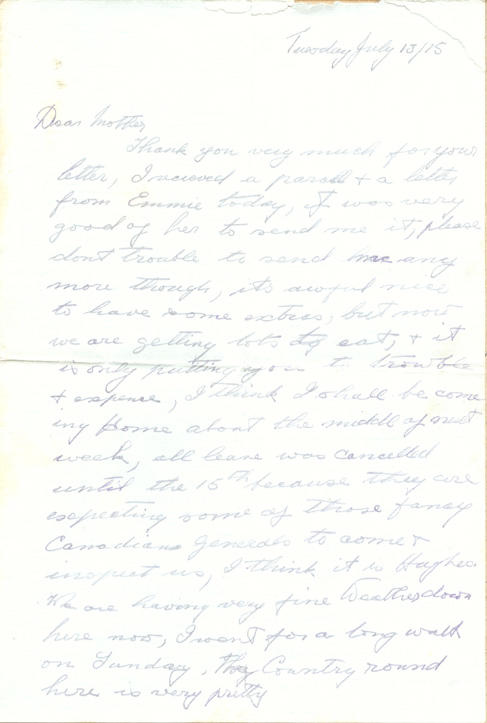 Tuesday July 13/15
Dear Mother,
Thank you very much for your
letter, I recieved a parcel + a letter
from Emmie today, it was very
good of her to send me it, please
dont trouble to send me any
more though, its awful nice
to have some extras, but now
we are getting lots to eat, + it
is only putting you to trouble
+ expense, I think I shall be come
ing home about the middle of next
week, all leave was cancelled
until the 15th because they are
expecting some of those fancy
Canadians Generals to come +
inspect us, I think it is Hughes
We are having very fine Weather down
here now, I went for a long walk
on Sunday, The Country round
here is very pretty